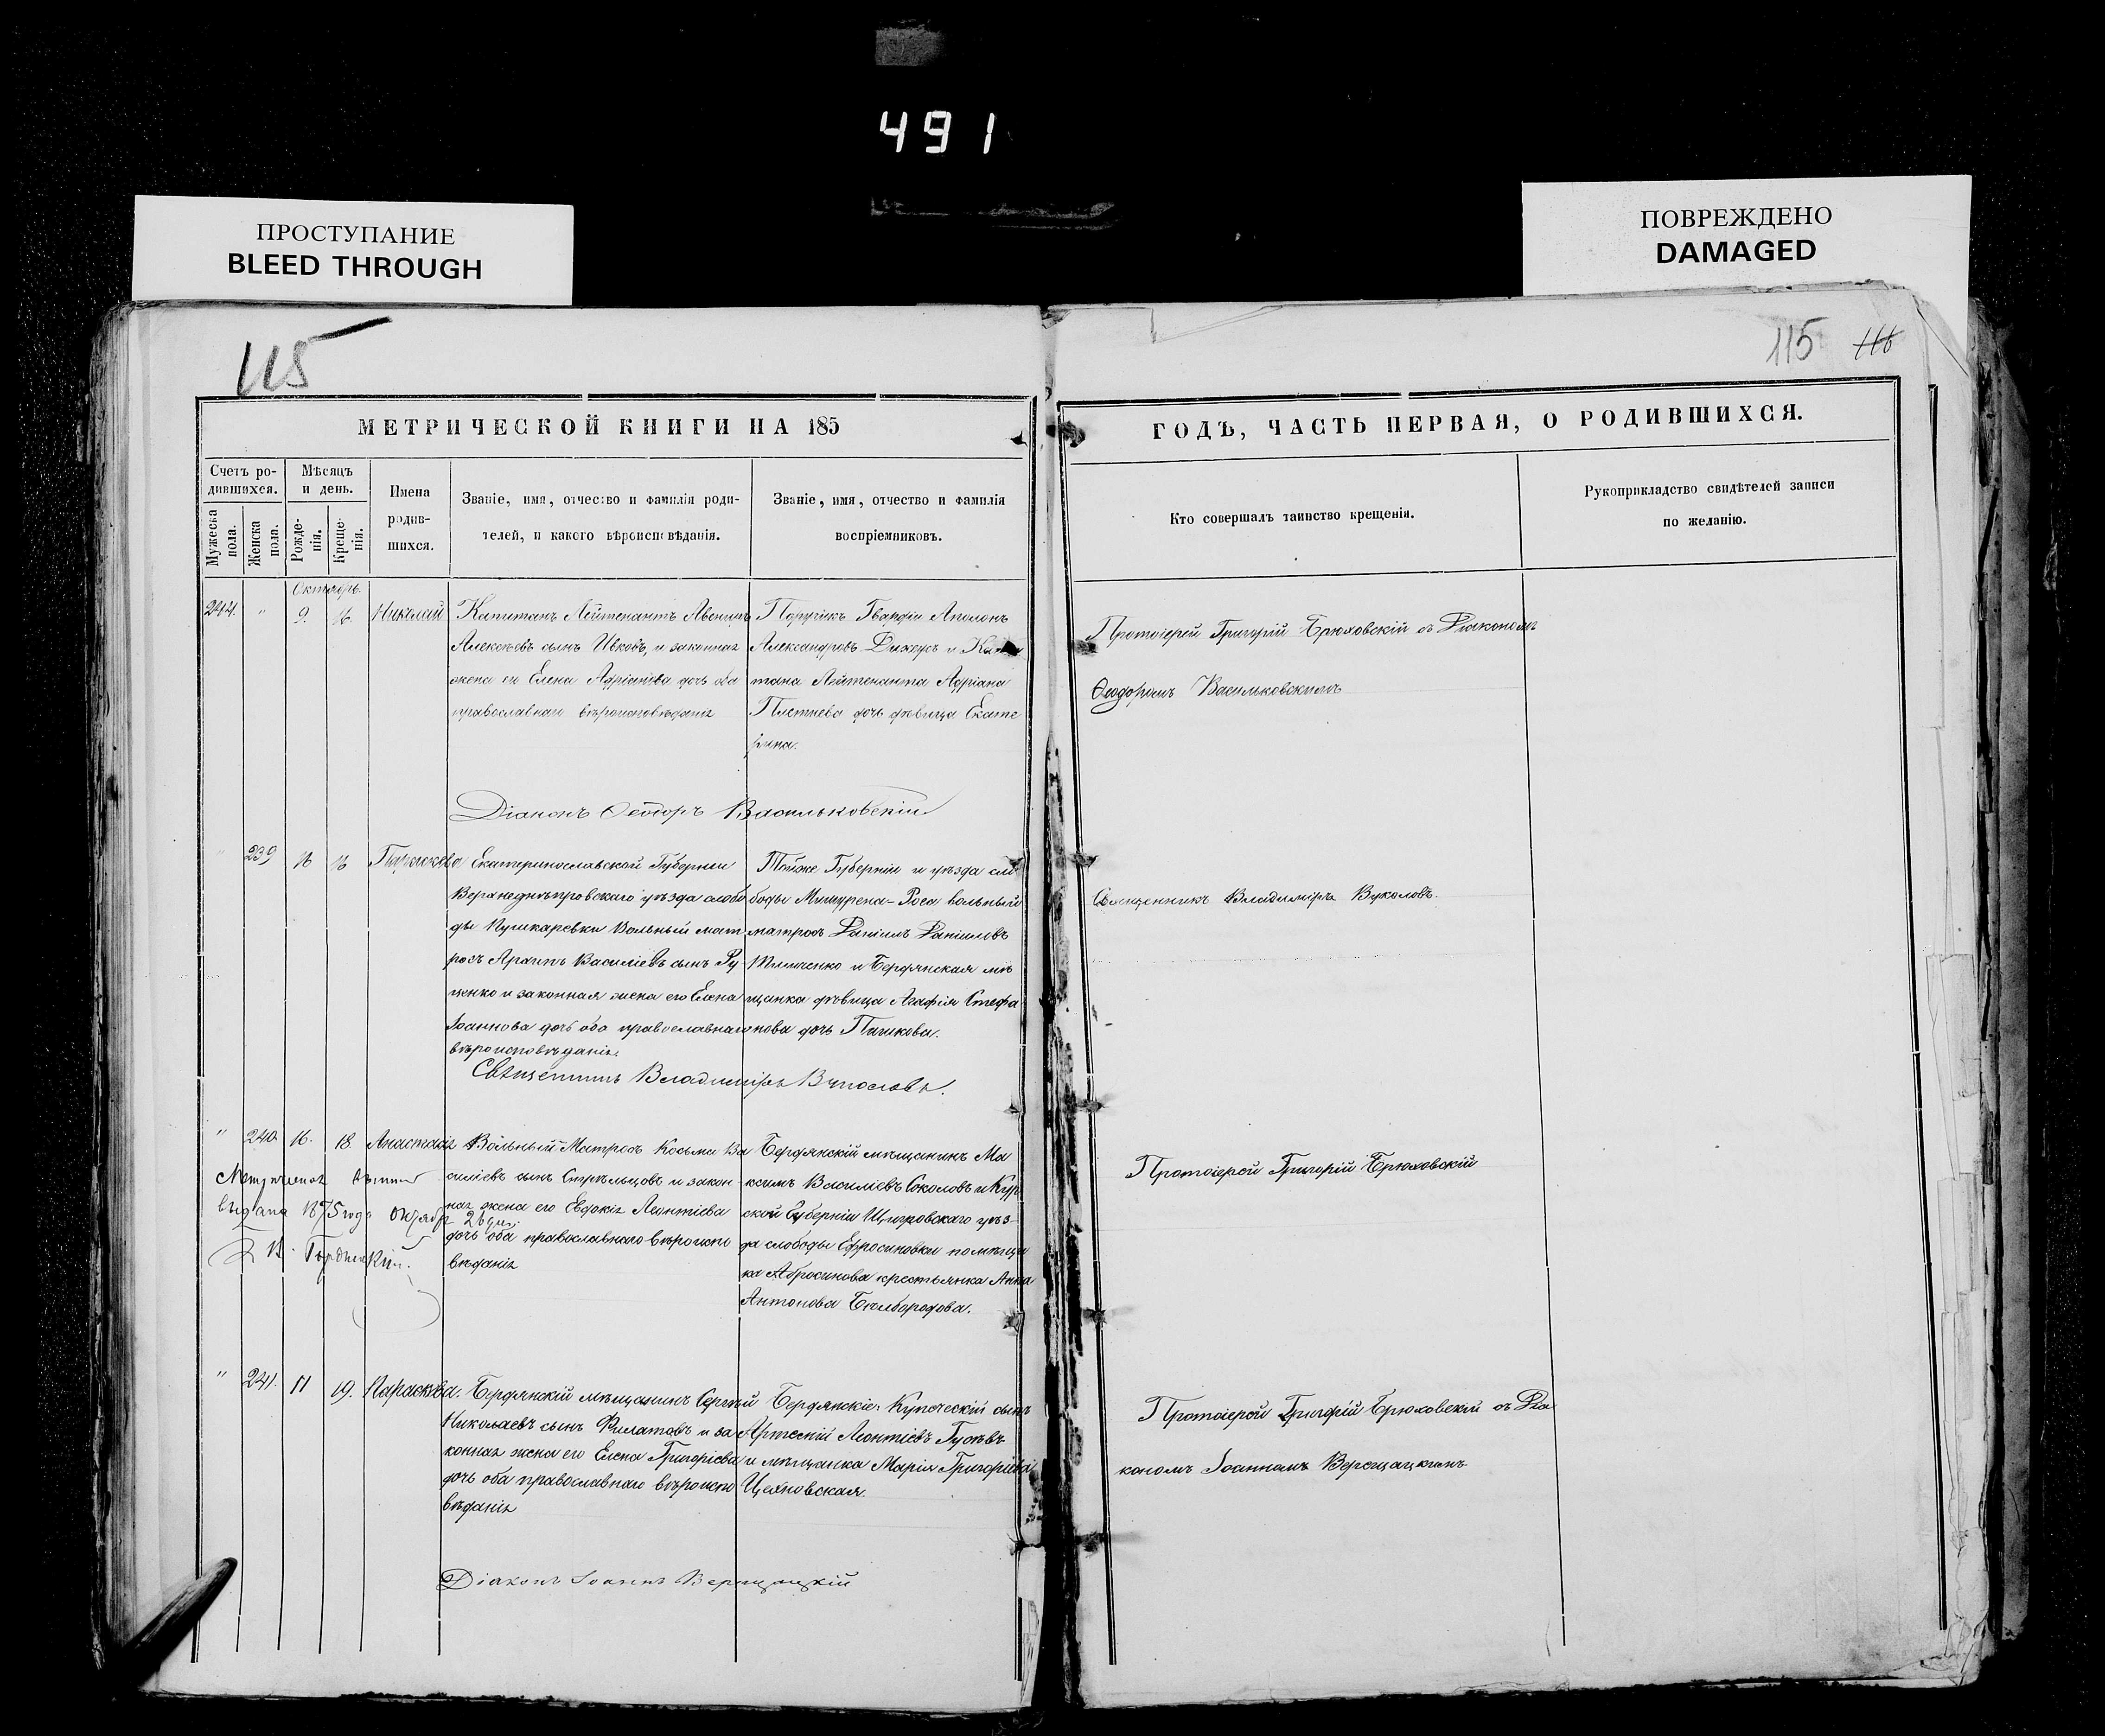 491
ПРОСТУПАНИЕ
BLEED THROUGH
ПОВРЕЖДЕНО
DAMAGED
115
115 116
МЕТРИЧЕСКОЙ КНИГИ НА 185
ГОДЪ, ЧАСТЬ ПЕРВАЯ, О РОДИВШИХСЯ.
Счетъ ро-
дившихся.
Мужеска пола.
Женска пола.
Мѣсяцъ
и день.
Рожде-
нія.
Креще-
нія.
Имена
родив-
шихся.
Званіе, имя, отчество и фамилія роди-
телей, и какого вѣроисповѣданія.
Званіе, имя, отчество и фамилія
воспріемниковъ.
Кто совершалъ таинство крещенія.
Рукоприкладство свидѣтелей записи
по желанію.
Октябрь.
244. " 9. 16. Николай
Капитанъ Лейтенантъ
Алексѣевъ сынъ Ивковъ, и законная
жена его Елена Адріанова дочь оба
православнаго вѣроисповѣданія
Поручикъ Гвардіи Аполонъ
Александровъ и
тана Лейтенанта Адріана
Плетнева дочь дѣвица Екате
рина.
Протоіерей Григорій Брюховскій съ Діакономъ
Ѳеодоромъ Васильковскимъ
Діаконъ Ѳеодоръ Васильковскій
" 239 16 16
Екатеринославской Губерніи
Верхнеднѣпровскаго уѣзда слобо
ды Пушкаревки Вольный мат
росъ Архипъ Василіевъ сынъ Ру
ценко и законная жена его Елена
Іоаннова дочь оба православнаго
вѣроисповѣданія.
Тойже Губерніи и уѣзда сло
боды Мишурена-Рога вольный
матросъ Даніилъ Даніиловъ
и Бердянская мѣ
щанка дѣвица Агафія Стефа
нова дочь
Священникъ Владиміръ Вуколовъ.
Священникъ Владиміръ Вуколовъ.
" 240 16. 18 Анастасія
Вольный Матросъ Косьма Ва
силіевъ сынъ Стрѣльцовъ и закон-
ная жена его Евдокія Леонтіева
дочь оба православнаго вѣроиспо
вѣданія
выдана 1875 года Октября 26 дня.
Бердянскій мѣщанинъ Ма
ксимъ Василіевъ Соколовъ и Кур
ской Губерніи Щигровскаго уѣз-
да слободы Ефросиновки помѣщи
ка Абросимова крестьянка Анна
Антонова Бѣлбородова.
Протоіерей Григорій Брюховскій
" 241. 11 19. Параскева.
Бердянскій мѣщанинъ Сергѣй
Николаевъ сынъ Филатовъ и за
конная жена его Елена Григоріева
дочь оба православнаго вѣроиспо
вѣданія
Бердянскіе: Купеческій сынъ
Арсеній Леонтіевъ Гусевъ
и мѣщанка Марія Григоріева
Цехновская.
Протоіерей Григорій Брюховскій съ Діа
кономъ Іоанномъ Верещацкимъ
Діаконъ Іоаннъ Верещацкій